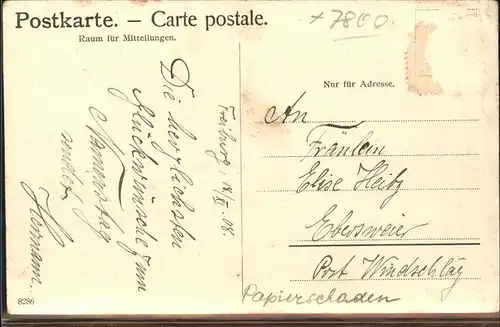 Postkarte. – Carte postale.
Raum für Mitteilungen.
+7800
Nur für Adresse.
Freiburg, 18/II. 08.
Die herzlichsten
Glückwünsche zum
Namenstag
sendet
Hermann.
An
Fräulein
Elise Heitz
Ebersweier
Post Windschläg
Papierschaden
8286